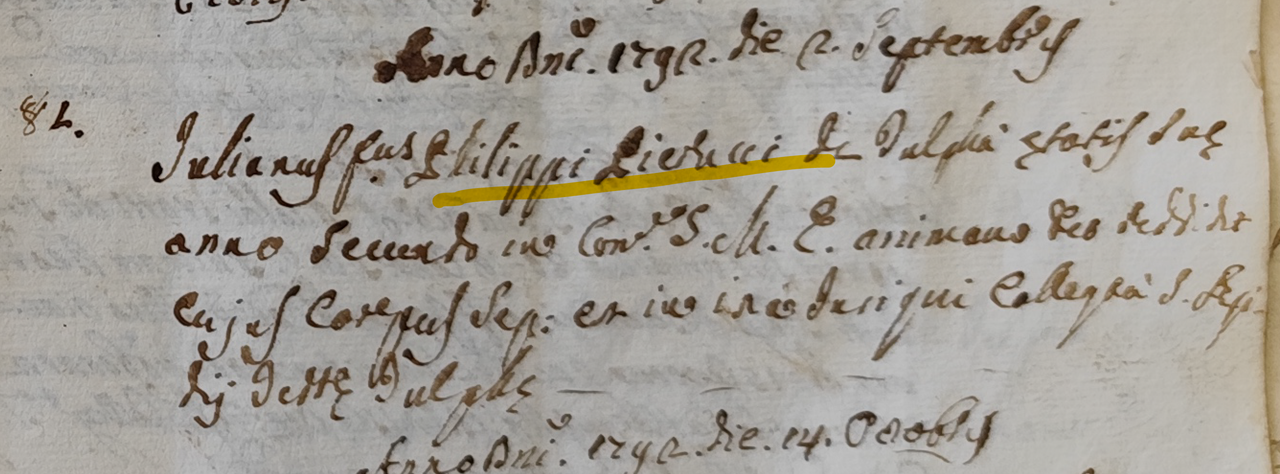 Anno Dni. 1792. die 2. Septembris
82.
Julianus f.us Philippi Pieducci de Tulphâ ętatis suę
anno secundo in Com.e S. M. E. animam Deo reddidit
cujus Corpus Sep: est in Collegiatâ S.
dij dictę Tulphę
Anno Dni. 1792. die. 14. Octobris